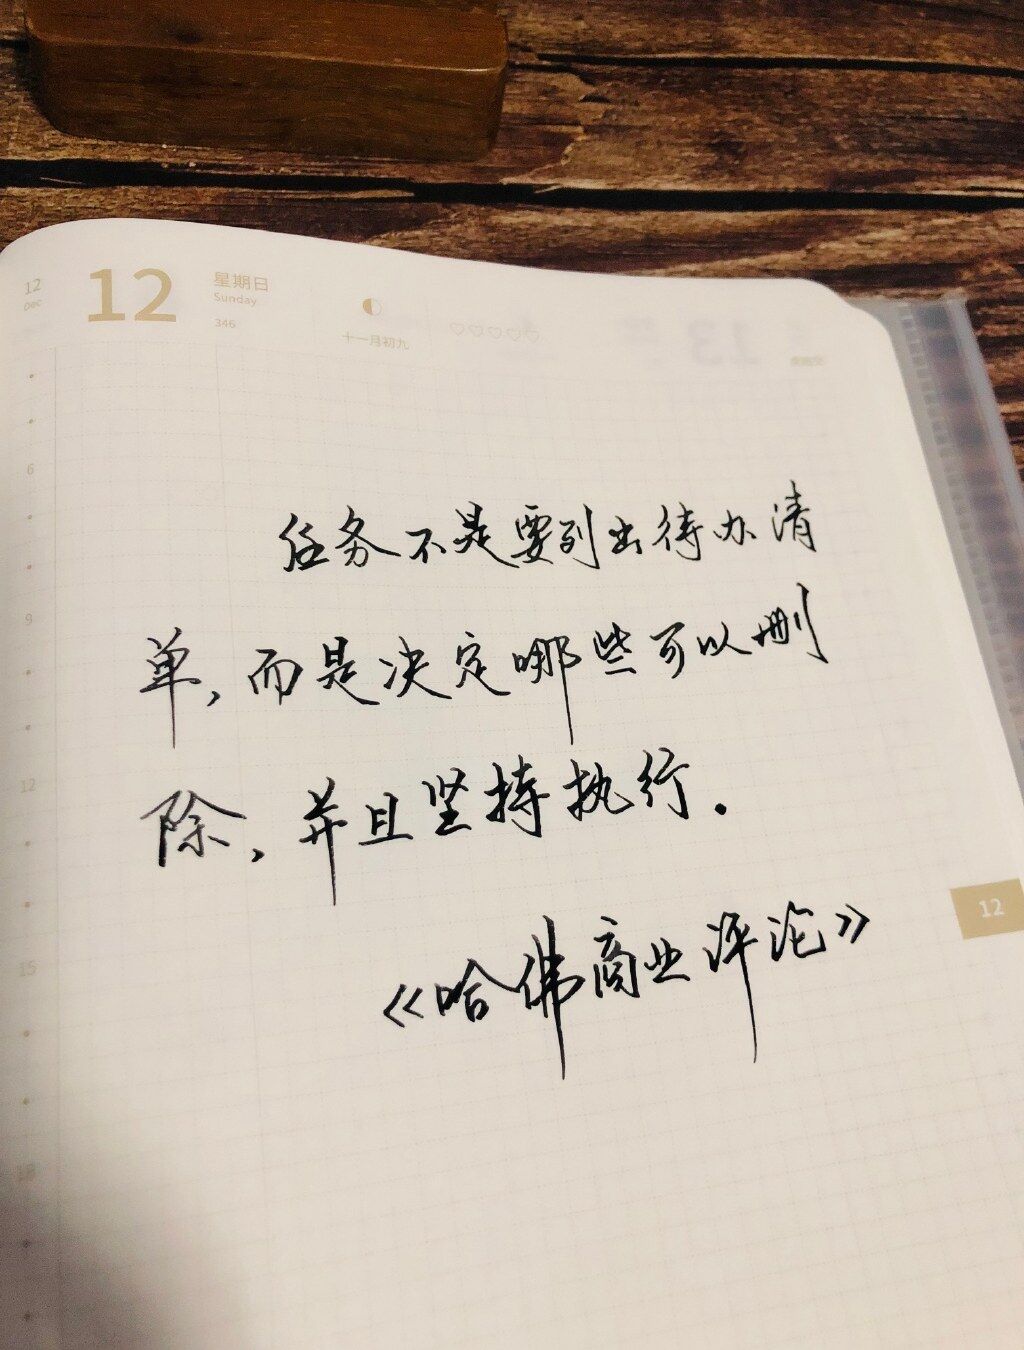 12
Dec
12
星期日
Sunday
346
十一月初九
6
9
12
15
18
任务不是要列出待办清
单，而是决定哪些可以删
除，并且坚持执行.
《哈佛商业评论》
12
13